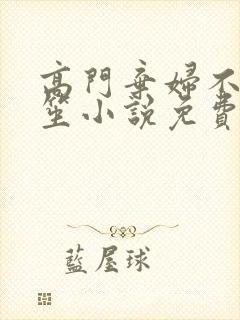 高門棄婦不
笙小說免費
藍屋球